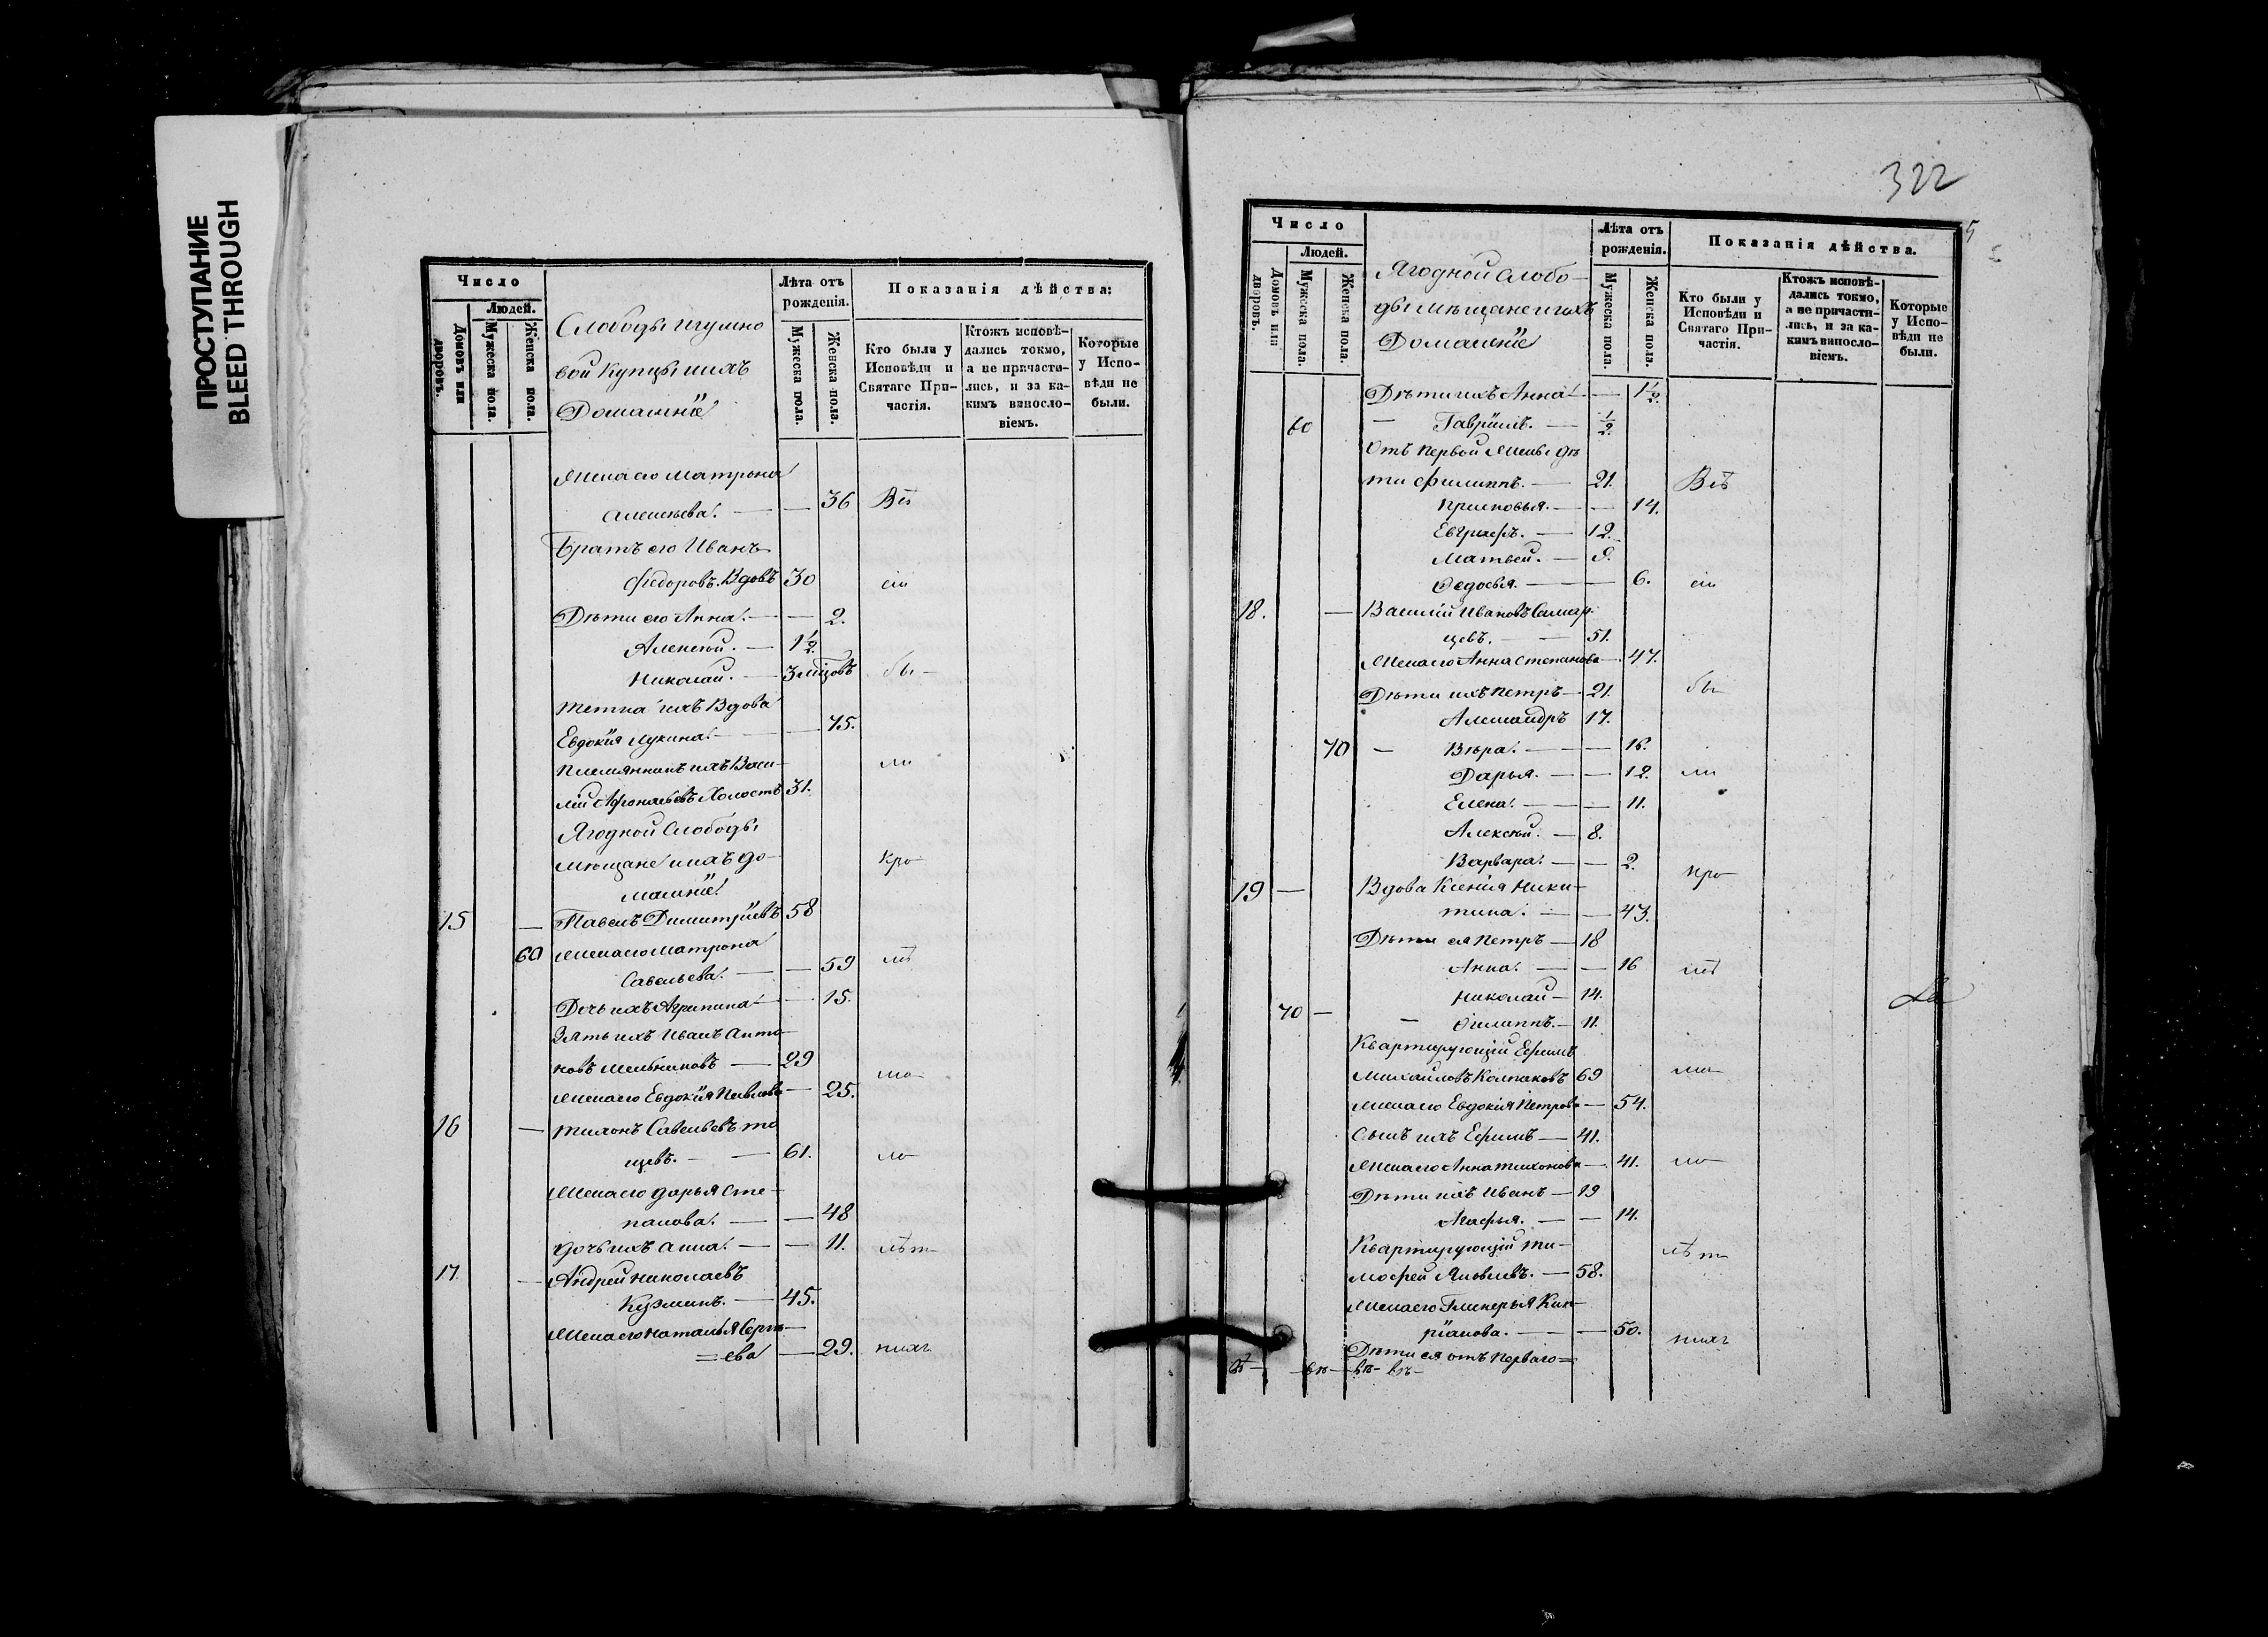 ПРОСТУПАНИЕ
BLEED THROUGH
Число
Людей.
Домовъ или дворовъ.
Мужеска пола.
Женска пола.
Слободы Игумно
вой Купцы и ихъ
Домашніе
Лѣта отъ рожденія.
Мужеска пола.
Женска пола.
Показанія дѣйства:
Кто были у Исповѣди и Святаго Причастія.
Ктожъ исповѣдались токмо, а не причастились, и за какимъ винословіемъ.
Которые у Исповѣди не были.
Жена его Матрона
Алексѣева. — — 36 Всѣ
Братъ его Иванъ
Федоровъ. Вдовъ 30 сіи
Дѣти его Анна. — — 2.
Алексѣй. — 1½
Николай. — 3 мѣсцовъ бы-
Тетка ихъ Вдова
Евдокія Лукина. — 75.
Племянникъ ихъ Васи- ли
лій Афонасьевъ Холостъ 31.
Ягодной Слободы
мѣщане и ихъ до- кро-
машніе
15 — Павелъ Димитріевъ 58
60 Жена его Матрона
Савельева. — — 59
Дочь ихъ Агрипина — — 15.
Зять ихъ Иванъ Анто-
новъ Мельниковъ — 29
Жена его Евдокія Павлова — 25.
16 — Тихонъ Савельевъ
щевъ. — — 61.
Жена его Дарья Сте-
панова. — — 48
Дочь ихъ Анна. — — 11. лѣт-
17 — Андрей Николаевъ
Кузминъ. — 45.
Жена его Наталья Сергѣ-
=ева — 29. нихъ
322
5
Число
Людей.
Домовъ или дворовъ.
Мужеска пола.
Женска пола.
Ягодной слобо-
ды мѣщане и ихъ
Домашніе
Лѣта отъ рожденія.
Мужеска пола.
Женска пола.
Показанія дѣйства.
Кто были у Исповѣди и Святаго Причастія.
Ктожъ исповѣдались токмо, а не причастились, и за какимъ винословіемъ.
Которые у Исповѣди не были.
Дѣти ихъ Анна — — 1½.
60 — Гавріилъ. — ½
Отъ первой жены дѣ-
ти Филиппъ. — 21. Всѣ
Прасковья. — — 14.
Евграфъ. — 12.
Матвей. — 9.
Федосья. — — 6. сіи
18. — Василій Ивановъ
щевъ. — — 51.
Жена его Анна Степанова — 47.
Дѣти ихъ Петръ — 21. бы-
Александръ 17.
70 — Вѣра. — — 16.
Дарья. — — 12. ли
Елена. — — 11.
Алексѣй. — 8.
Варвара. — — 2. кро-
19 — Вдова Ксенія Ники-
тина. — — 43.
Дѣти ея Петръ — 18
Анна. — — 16
Николай — 14.
70 — — Филиппъ. — 11.
Квартирующій Ефимъ
Михайловъ Колпаковъ 69
Жена его Евдокія Петрова — 54.
Сынъ ихъ Ефимъ — 41.
Жена его Анна Тихонова — 41.
Дѣти ихъ Иванъ — 19
Агафья. — — 14.
Квартирующій Ти- лѣт-
мофей Яковлевъ. — 58.
Жена его Гликерья Кип-
ріанова. — — 50. нихъ
Дѣти ея отъ перваго=